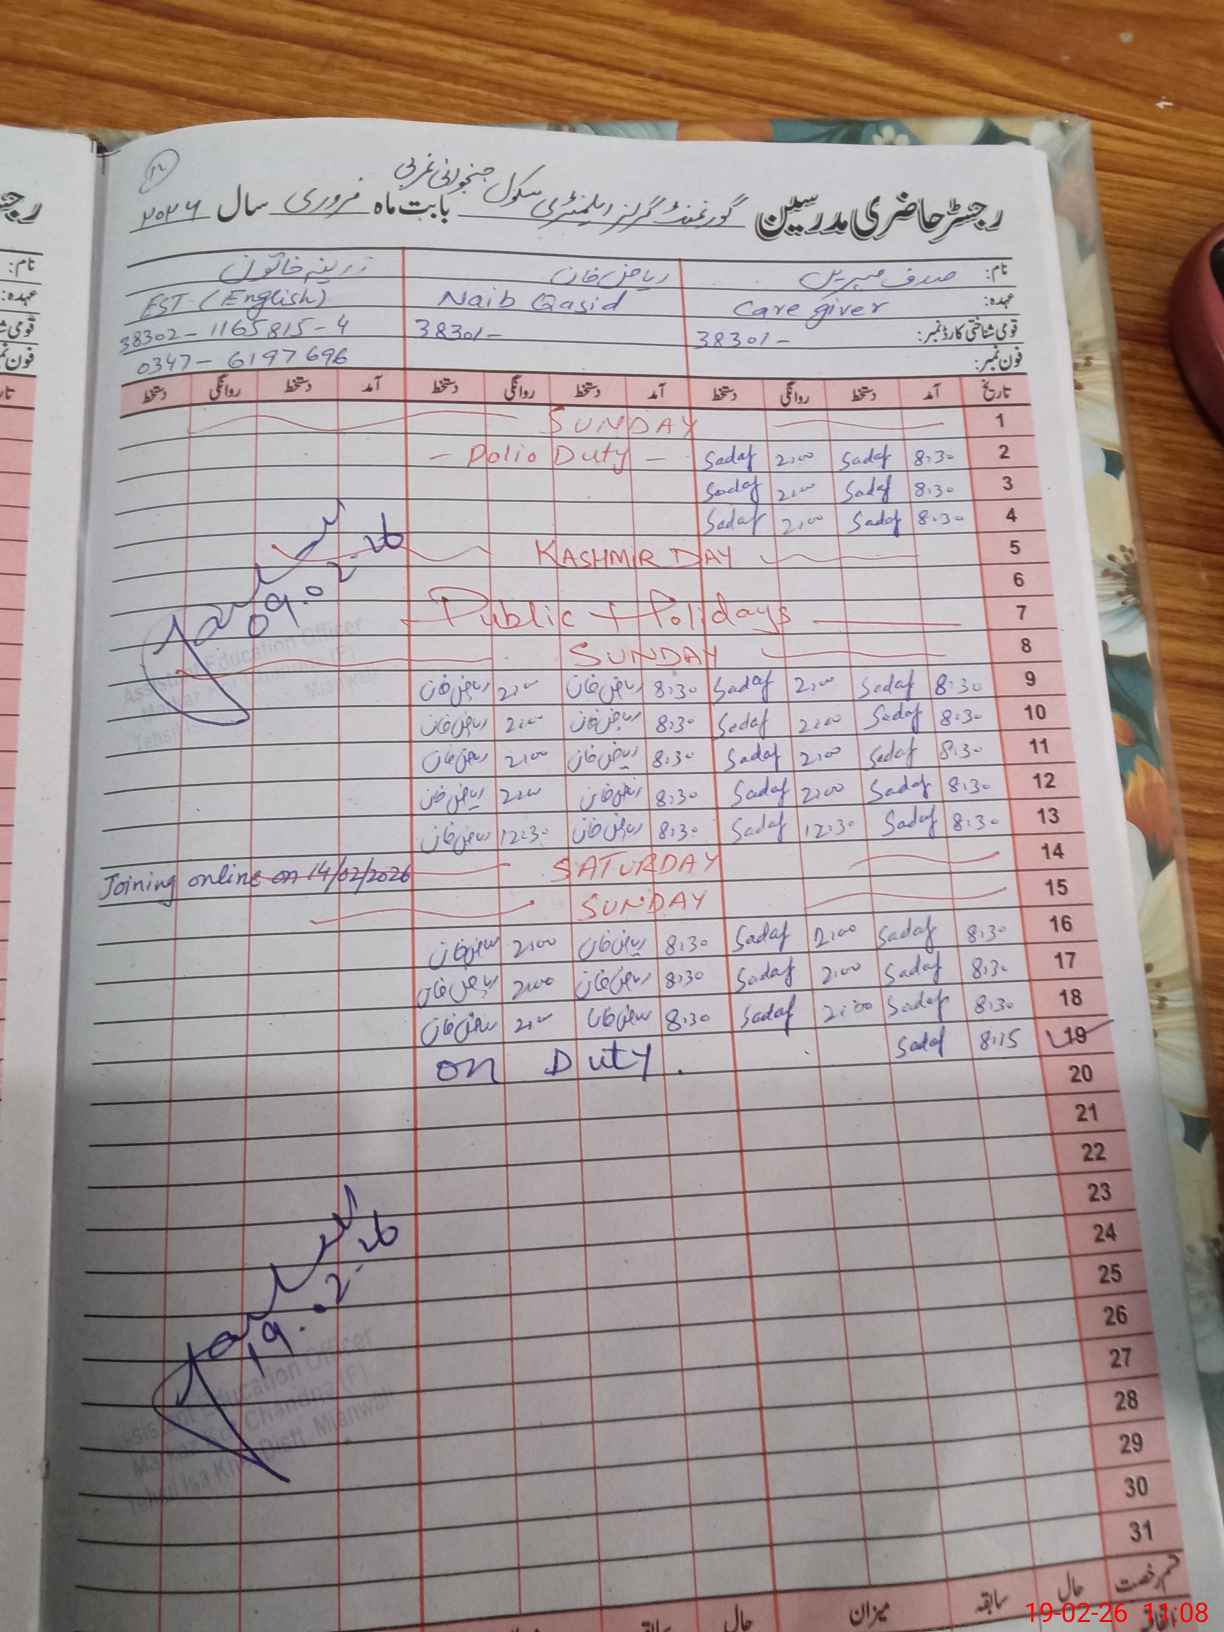 رجسٹر حاضری مدرسین گورنمنٹ گرلز ایلیمنٹری سکول جنجوانی غربی بابت ماہ فروری سال ۲۰۲۶
نام: صدف ریاض خان زرینہ خاتون
عہدہ: Care giver Naib Qasid EST (English)
قومی شناختی کارڈ نمبر: 38301- 38301- 38302-1165815-4
فون نمبر: 0347-6197696
تاریخ آمد دستخط روانگی دستخط آمد دستخط روانگی دستخط آمد دستخط روانگی دستخط
1 SUNDAY
2 8:30 Sadaf 2:00 Sadaf - Polio Duty -
3 8:30 Sadaf 2:00 Sadaf
4 8:30 Sadaf 2:00 Sadaf
5 KASHMIR DAY
6
7 Public Holidays
8 SUNDAY
9 8:30 Sadaf 2:00 Sadaf 8:30 ریاض خان 2:00 ریاض خان
10 8:30 Sadaf 2:00 Sadaf 8:30 ریاض خان 2:00 ریاض خان
11 8:30 Sadaf 2:00 Sadaf 8:30 ریاض خان 2:00 ریاض خان
12 8:30 Sadaf 2:00 Sadaf 8:30 ریاض خان 2:00 ریاض خان
13 8:30 Sadaf 12:30 Sadaf 8:30 ریاض خان 12:30 ریاض خان
14 SATURDAY Joining online on 14/02/2026
15 SUNDAY
16 8:30 Sadaf 2:00 Sadaf 8:30 ریاض خان 2:00 ریاض خان
17 8:30 Sadaf 2:00 Sadaf 8:30 ریاض خان 2:00 ریاض خان
18 8:30 Sadaf 2:00 Sadaf 8:30 ریاض خان 2:00 ریاض خان
19 8:15 Sadaf on Duty.
20
21
22
23
24
25
26
27
28
29
30
31
09.02.26
Assistant Education Officer
19.02.26
Assistant Education Officer
قسم رخصت حال سابقہ میزان حال
19-02-26 11:08